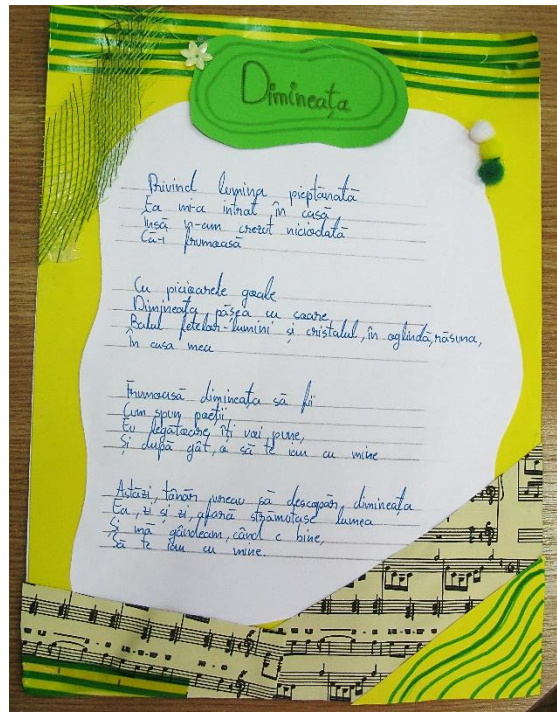 Dimineața
Privind lumina pieptănată
Ea mi-a intrat în casă
Însă n-am crezut niciodată
Că-i frumoasă
Cu picioarele goale
Dimineața pășea cu soare,
Balul fetelor-lumini și cristalul, în oglindă, răsuna,
în casa mea
Frumoasă dimineața să fii
Cum spun poeții,
Eu legătoare, îți voi pune,
Și după gât, o să te iau cu mine
Astăzi, tânăr vreau să descopăr, dimineața
Ea, zi și zi, afară strămutase lumea
Și mă gândeam, când e bine,
Să te iau cu mine.